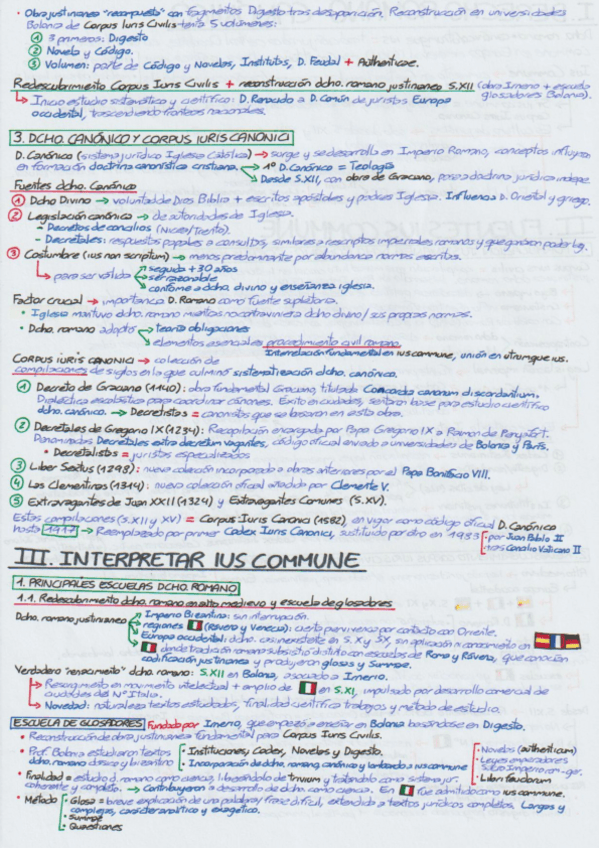 • Obra justinianea "recompuesta" con fragmentos Digesto tras desaparición. Reconstrucción en universidades
Bolonia de Corpus Iuris Civilis tenía 5 volúmenes:
① 3 primeros: Digesto
② Novela y Código.
③ Volumen: parte de Código y Novelas, Institutas, D. Feudal + Authenticae.
Redescubrimiento Corpus Iuris Civilis + reconstrucción dcho. romano justinianeo S.XII (obra Irnerio + escuela
glosadores Bolonia).
↳ Inicio estudio sistemático y científico: D. Romano a D. Común de juristas Europa
occidental, trascendiendo fronteras nacionales.
3. DCHO. CANÓNICO Y CORPUS IURIS CANONICI
D. Canónico (sistema jurídico Iglesia Católica) → surge y se desarrolla en Imperio Romano, conceptos influyen
en formación doctrina canonística cristiana. 1º D. Canónico = Teología
Desde S.XII, con obra de Graciano, pasa a doctrina jurídica indepe.
Fuentes dcho. Canónico
① Dcho Divino → voluntad de Dios Biblia + escritos apostolales y padres Iglesia. Influencia D. Oriental y griego.
② Legislación canónica → de autoridades de Iglesia.
- Decretos de concilios (Nicea/Trento).
- Decretales: respuestas papales a consultas, similares a rescriptos imperiales romanos y que ganaron poder leg.
③ Costumbre (ius non scriptum) → menos predominante por abundancia normas escritas.
↳ para ser válida seguida +30 años
ser razonable
conforme a dcho. divino y enseñanza iglesia.
Factor crucial → importancia D. Romano como fuente supletoria.
• Iglesia mantuvo dcho. romano mientras no contraviniera dcho divino/sus propias normas.
• Dcho. romano adoptó teoría obligaciones
elementos esenciales procedimiento civil romano.
Interrelación fundamental en ius commune, unión en utrumque ius.
CORPUS IURIS CANONICI → colección de
compilaciones de siglos en la que culminó sistematización dcho. canónico.
① Decreto de Graciano (1140): obra fundamental Graciano, titulada Concordia canonum discordantium.
Dialéctica escolástica para coordinar cánones. Éxito en ciudades, sentaron base para estudio científico
dcho. canónico. → Decretistas = canonistas que se basaron en esta obra.
② Decretales de Gregorio IX (1234): Recopilación encargada por Papa Gregorio IX a Raimon de Penyafort.
Denominadas Decretales extra decretum vagantes, código oficial enviado a universidades de Bolonia y París.
• Decretalistas = juristas especializados
③ Liber Sextus (1298): nueva colección incorporada a obras anteriores por el Papa Bonifacio VIII.
④ Las Clementinas (1314): nueva colección oficial añadida por Clemente V.
⑤ Extravagantes de Juan XXII (1324) y Extravagantes Comunes (S.XV).
Estas compilaciones (S.XII y XV) = Corpus Iuris Canonici (1582), en vigor como código oficial D. Canónico
hasta 1917 → Reemplazado por primer Codex Iuris Canonici, sustituido por otro en 1983 • por Juan Pablo II
• tras Concilio Vaticano II
III. INTERPRETAR IUS COMMUNE
1. PRINCIPALES ESCUELAS DCHO. ROMANO
1.1. Redescubrimiento dcho. romano en alto medievo y escuela de glosadores
Dcho. romano justinianeo Imperio Bizantino: sin interrupción.
regiones (Rávena y Venecia): cierta pervivencia por contacto con Oriente.
Europa occidental: dcho. casi inexistente en S. X y XI, sin aplicación ni conocimiento en
donde tradición romana subsistió distinto con escuelas de Roma y Rávena, que conocían
codificación justinianea y produjeron glosas y Summae.
Verdadero "renacimiento" dcho. romano: S.XII en Bolonia, asociado a Irnerio.
↳ Resurgimiento en movimiento intelectual + amplio de en S.XI, impulsado por desarrollo comercial de
ciudades del Nº Italia.
↳ Novedad: naturaleza textos estudiados, finalidad científica trabajos y método de estudio.
ESCUELA DE GLOSADORES Fundado por Irnerio, que empezó a enseñar en Bolonia basándose en Digesto.
• Reconstrucción de obra justinianea fundamental para Corpus Iuris Civilis.
• Prof. Bolonia estudiaron textos
dcho. romano clásico y bizantino
• Instituciones, Codex, Novelas y Digesto.
• Incorporación de dcho. romano, canónico y lombardo a ius commune
• Novelas (authenticum)
• Leyes emperadores
Sacro Imperio rom-ger.
• Libri feudorum
• Finalidad = estudio d. romano como ciencia, liberándolo de trivium y tratándolo como sistema jur.
coherente y completo. → Contribuyeron a desarrollo de dcho. como ciencia. En fue admitido como ius commune.
• Método • Glosa = breve explicación de una palabra/frase difícil, extendida a textos jurídicos completos. Largas y
complejas, carácter analítico y exegético.
• Summae
• Quaestiones